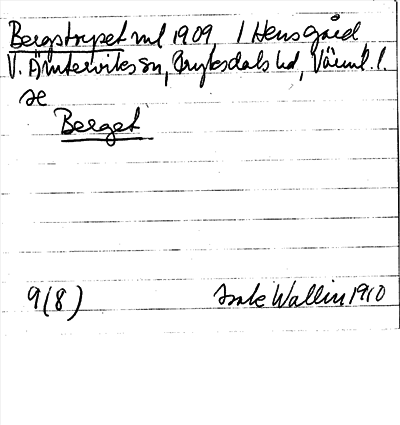 Bergstorpet ml 1909 / Hensgård
V. Ämterviks sn, Fryksdals hd, Värml. l.
se
Berget
9(8)
Wallin 1910